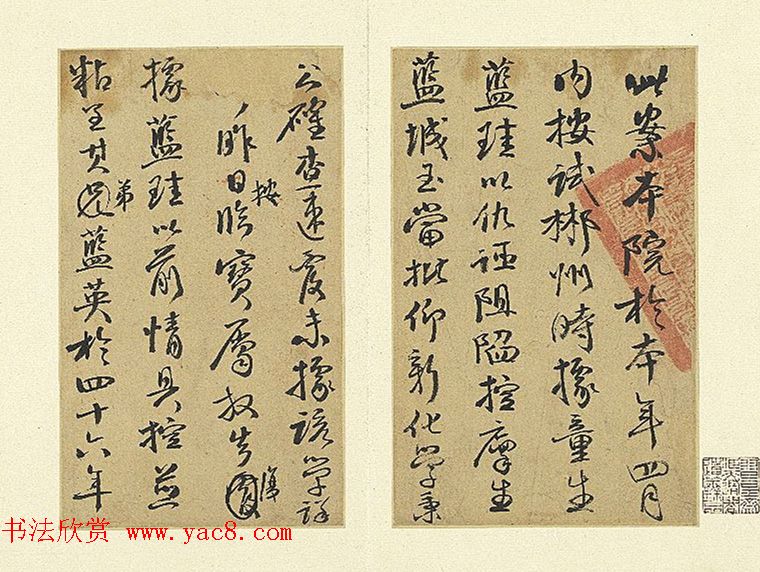 此案本院於本年四月
内按试郴州時據童生
藍珪以仇誣阻陷控廩生
藍城玉當批仰新化學秉
公確查速覆未據該學詳
昨日按臨寶屬
據藍珪以前情具控並
粘呈其弟藍英於四十六年
书法欣赏 www.yac8.com